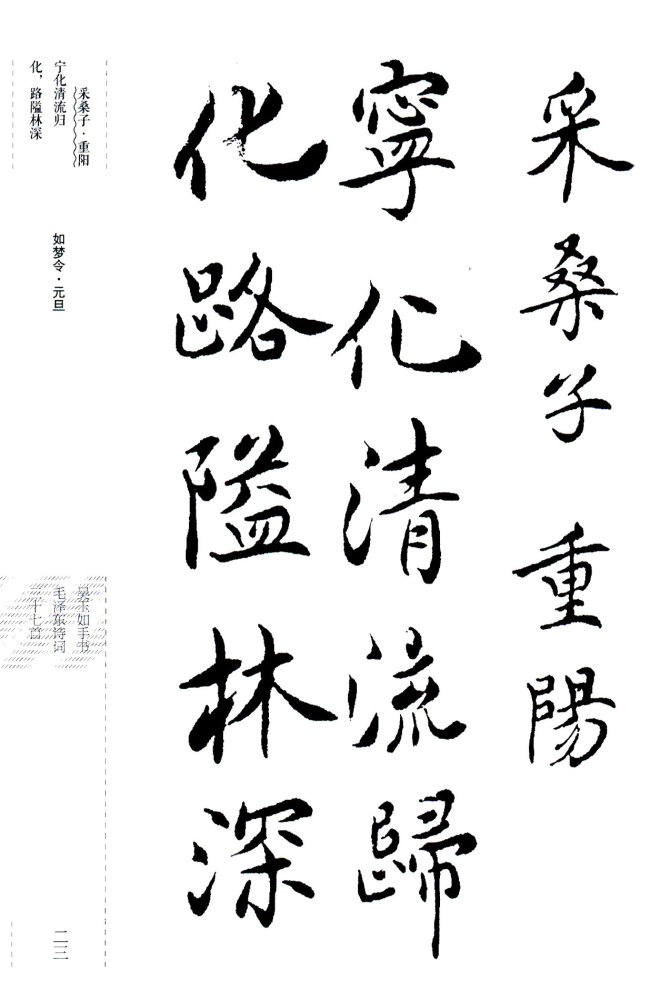 采桑子 重陽
寧化清流歸
化路隘林深
采桑子·重阳
宁化清流归
化，路隘林深
如梦令·元旦
吴玉如手书
毛泽东诗词
三十七首
二三